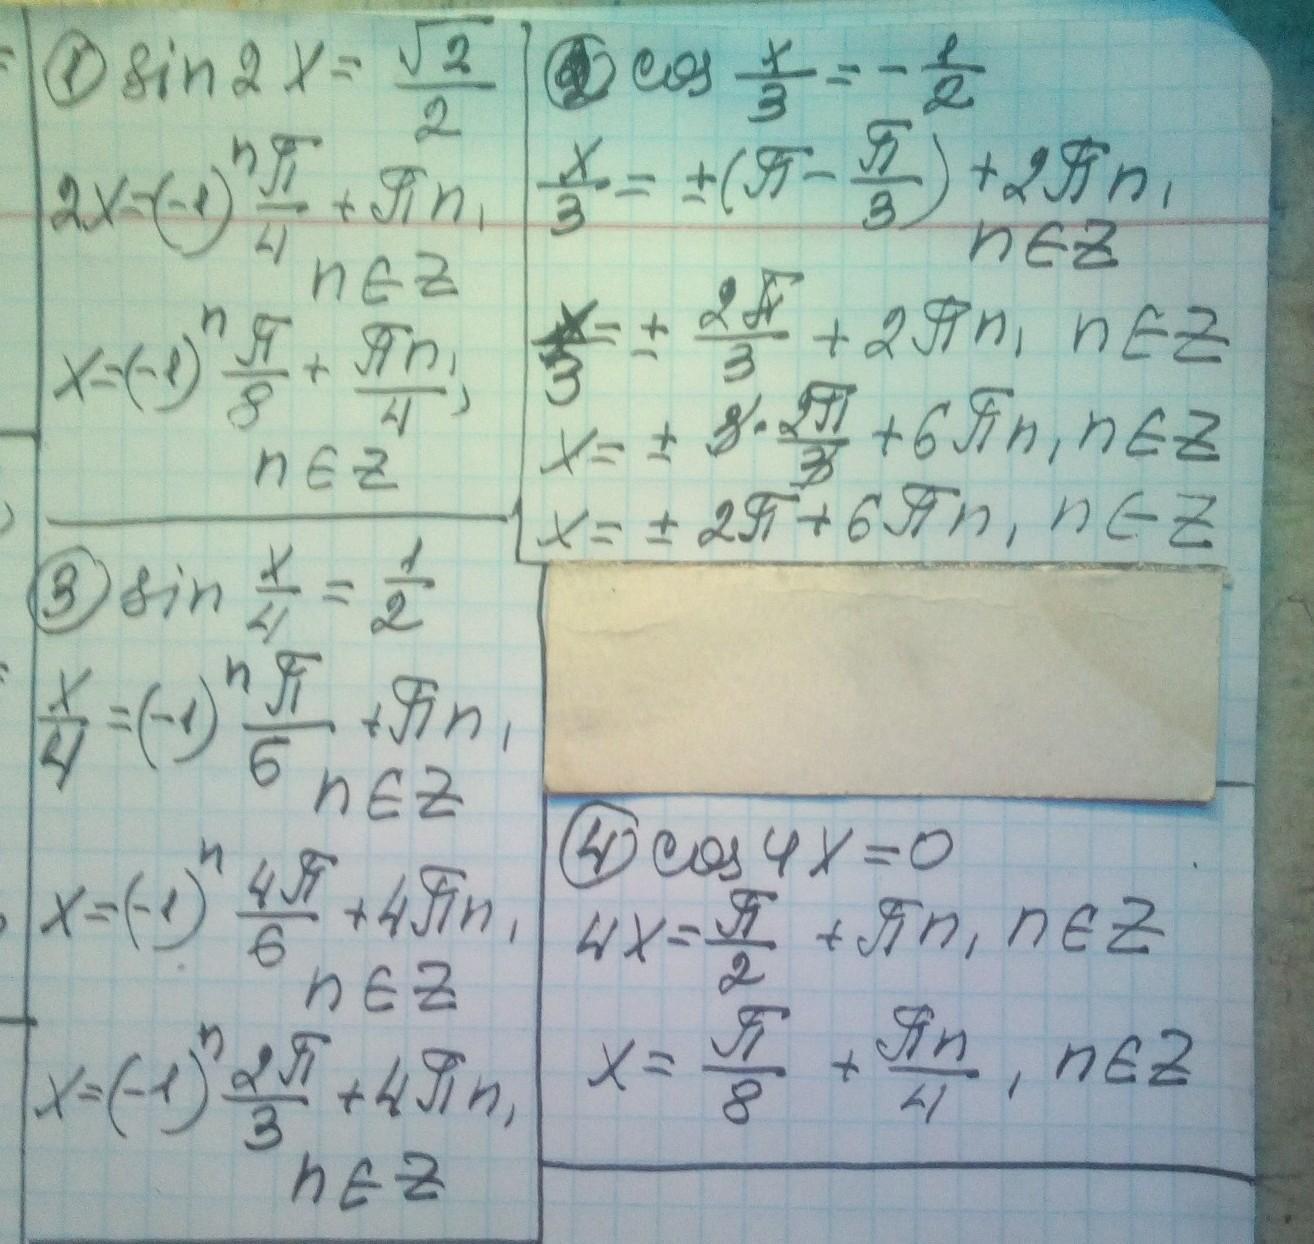 ① sin 2x = √2/2
2x = (-1)ⁿ π/4 + πn,
n ∈ Z
x = (-1)ⁿ π/8 + πn/4,
n ∈ Z
② cos x/3 = - 1/2
x/3 = ±(π - π/3) + 2πn,
n ∈ Z
x/3 = ± 2π/3 + 2πn, n ∈ Z
x = ± 3 · 2π/3 + 6πn, n ∈ Z
x = ± 2π + 6πn, n ∈ Z
③ sin x/4 = 1/2
x/4 = (-1)ⁿ π/6 + πn,
n ∈ Z
x = (-1)ⁿ 4π/6 + 4πn,
n ∈ Z
x = (-1)ⁿ 2π/3 + 4πn,
n ∈ Z
④ cos 4x = 0
4x = π/2 + πn, n ∈ Z
x = π/8 + πn/4, n ∈ Z